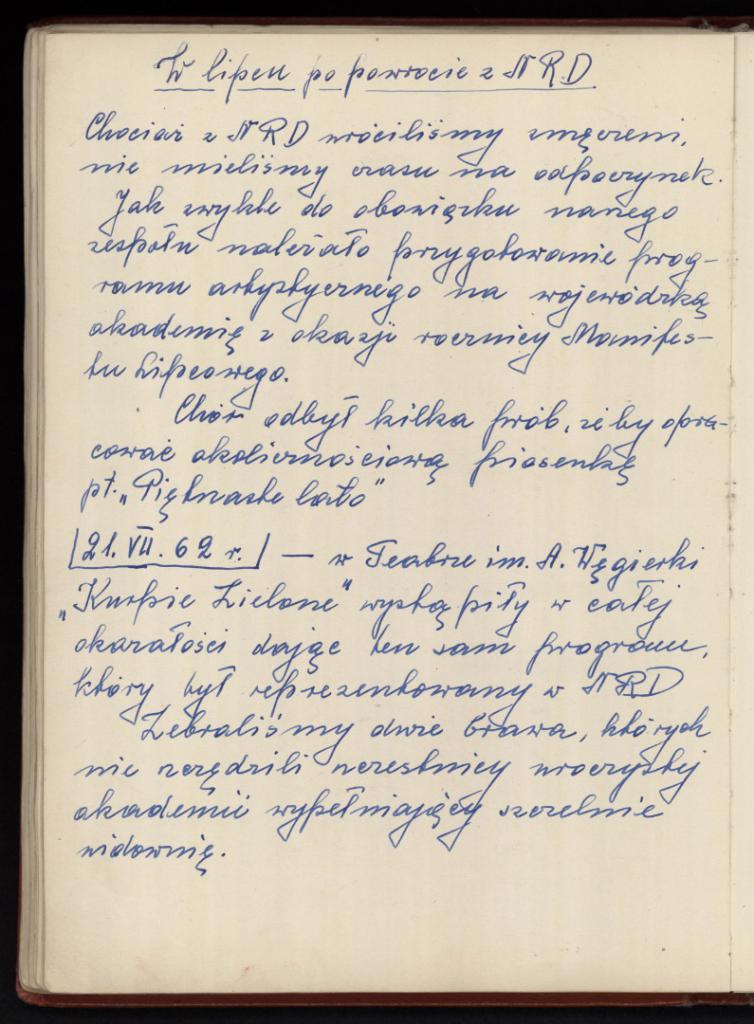 W lipcu po powrocie z NRD
Chociaż z NRD wróciliśmy zmęczeni,
nie mieliśmy czasu na odpoczynek.
Jak zwykle do obowiązku naszego
zespołu należało przygotowanie prog-
ramu artystycznego na wojewódzką
akademię z okazji rocznicy Manifes-
tu Lipcowego.
Chór odbył kilka prób, że by opra-
cować okolicznościową piosenkę
pt. „Piętnaste lato"
21. VII. 62 r. — w Teatrze im. A. Węgierki
„Kurpie Zielone" wystąpiły w całej
okazałości dając ten sam program,
który był reprezentowany w NRD
Zebraliśmy duże brawa, których
nie szczędzili uczestnicy uroczystej
akademii wypełniający szczelnie
widownię.